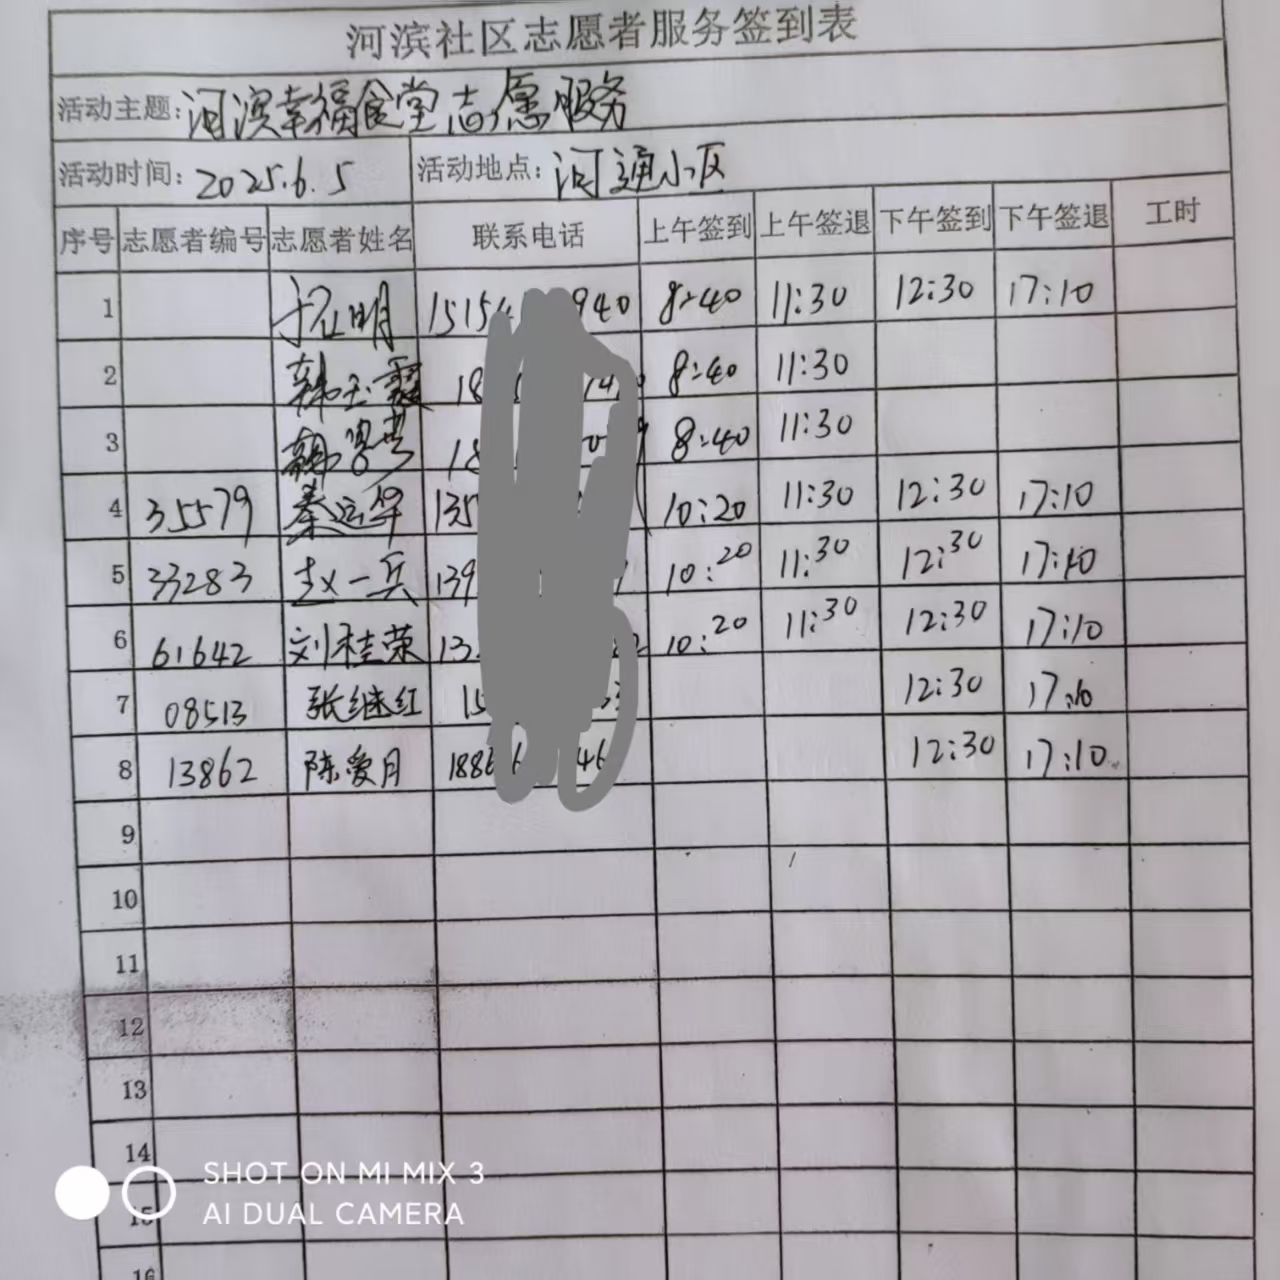 河滨社区志愿者服务签到表
活动主题：河滨幸福食堂志愿服务
活动时间：2025.6.5 活动地点：河通小区
序号 志愿者编号 志愿者姓名 联系电话 上午签到 上午签退 下午签到 下午签退 工时
1 8:40 11:30 12:30 17:10
2 韩玉霞 8:40 11:30
3 8:40 11:30
4 35579 秦运华 10:20 11:30 12:30 17:10
5 33283 赵一兵 10:20 11:30 12:30 17:10
6 61642 刘桂荣 10:20 11:30 12:30 17:10
7 08513 张继红 12:30 17:10
8 13862 陈爱月 12:30 17:10
9
10
11
12
13
14
15
16
SHOT ON MI MIX 3
AI DUAL CAMERA